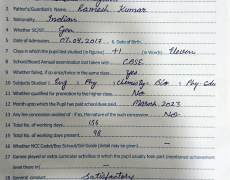 Father's/Guardian's Name Ramesh Kumar
Nationality Indian
Whether SC/ST Gen
Date of Admission 07.04.2017 & Date of Birth
Class in which the pupil last studied (in figures) +1 (in Words) Eleven
School/Board Annual examination last taken with CBSE
Whether failed, if so once/twice in the same class Yes
Subjects Studied : Eng Phy Chemistry Bio Phy. Edu
Whether qualified for promotion to the higher class No
Month upto which the Pupil has paid school dues March 2023
Any fee concession availed of : If so, the nature of such concession No
Total No. of working days 156
Total No. of working days present 98
Whether NCC Cadet/Boy Scout/Girl Guide (detail may be given)
Games played or extra curricular activities in which the pupil usually took part (mentioned achievement
General conduct Satisfactory